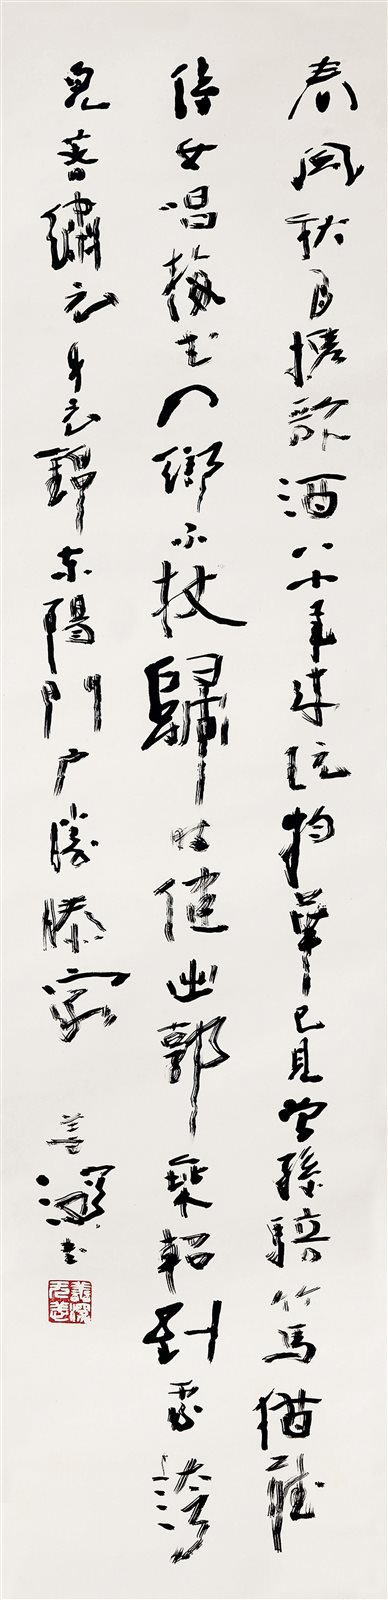 春風秋月攜歌酒八十年來玩物華已見曾孫騎竹馬猶聽
侍女唱梅花入鄉不杖歸時健出郭乘軺到處誇
兒著繡衣身衣錦東陽門戶勝滕家
書